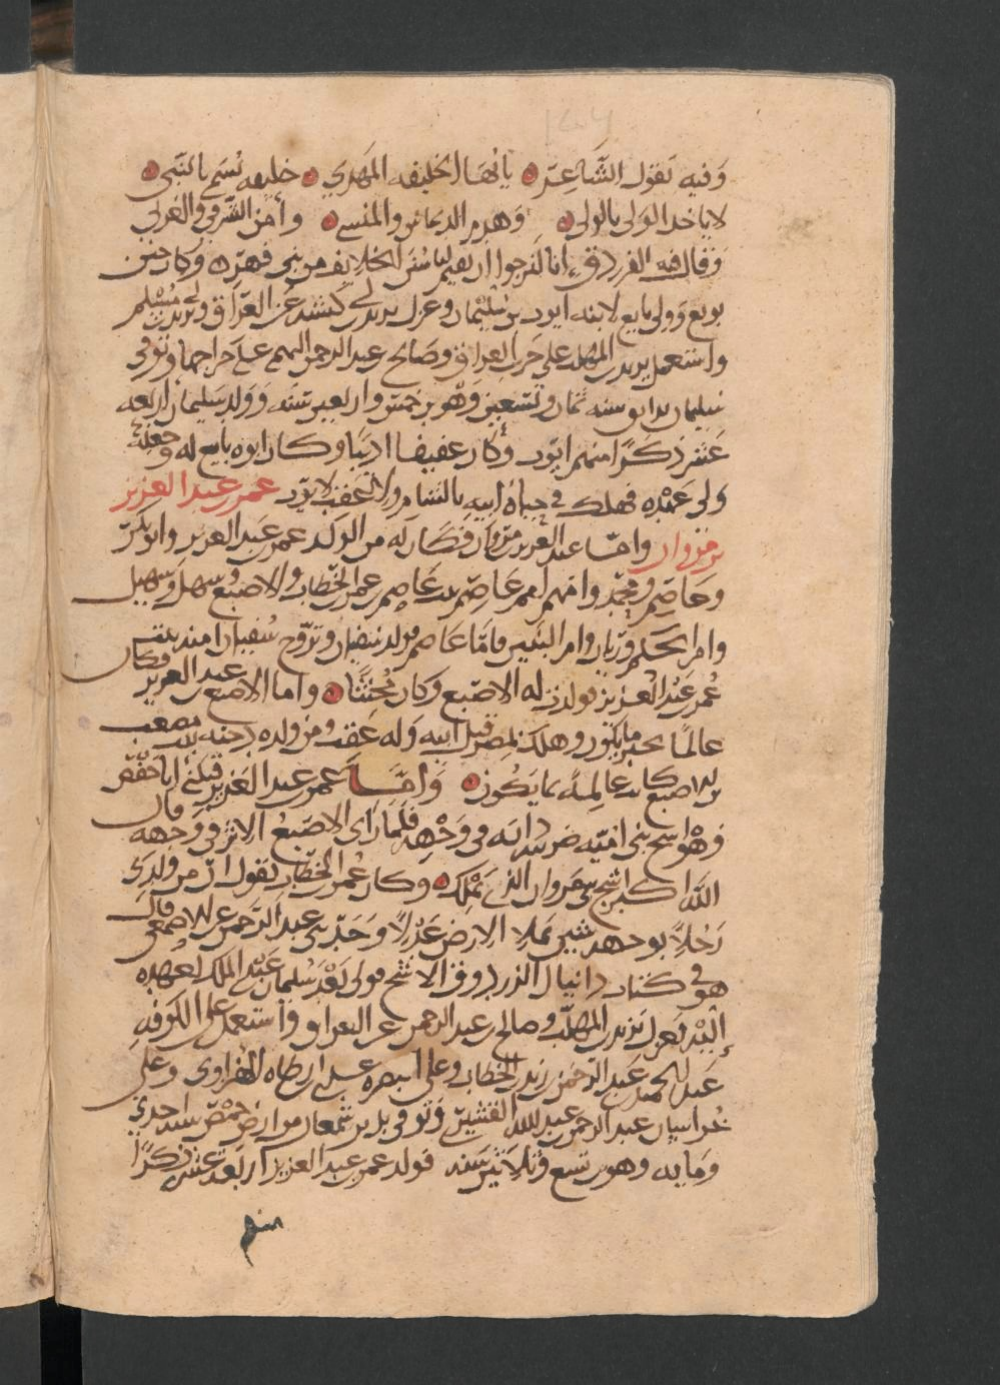 وفيه تقول الشاعر يا ايها الخليفه المهدي خليفه سم بالنبي
لا ياخذ الولي بالولي وهدم الديماس والمنسي وأمن الشرقي والغربي
وقال فيه الفرزدق انا لنرجوا ان تقيم لنا سنن الخلائف من بني فهر وكان حين
بويع وولي بايع لابنه ايوب بن سليمان وعزل يزيد بن ابي كبشه عن العراق وولي يزيد بن مسلم
واستعمل يزيد بن المهلب على حرب العراق وصالح بن عبد الرحمن على خراجها وتوفي
سليمان بدابق سنه ثمان وتسعين وهو بن خمس واربعين سنه وولد سليمان اربعه
عشر ذكرا منهم ايوب وكان عفيفا اديبا وكان ابوه بايع له وجعله
ولي عهده فهلك في حياة ابيه بالشام ولا عقب لايوب عمر بن عبد العزيز
بن مروان واما عبد العزيز بن مروان فكان له من الولد عمر بن عبد العزيز وابو بكر
وعاصم ومحمد وامهم ام عاصم بنت عاصم بن عمر بن الخطاب والاصبغ وسهل وسهيل
وام الحكم وزبان وام البنين فاما عاصم فولد سفيان وتزوج سفيان امنه بنت
عمر بن عبد العزيز فولدت له الاصبغ وكان مخنثا واما الاصبغ بن عبد العزيز فكان
عالما بخبر ما يكون وهلك بمصر قبل ابيه وله عقب ومن ولده دحيه بن مصعب
بن الاصبغ كان عالما بما يكون واما عمر بن عبد العزيز فكني ابا حفص
وهو اشج بني اميه ضربته دابه في وجهه فلما راى الاصبغ الاثر في وجهه قال
الله اكبر اشج بني مروان الذي يملك وكان عمر بن الخطاب يقول ان من ولدي
رجلا بوجهه شين يملا الارض عدلا وحدثني عبد الرحمن عن الاصمعي قال
هو في كتاب دانيال الدردوق الاشج فولي بعد سليمان بن عبد الملك بعهده
إليه فعزل يزيد بن المهلب وصالح بن عبد الرحمن عن العراق واستعمل على الكوفه
عبد الحميد بن عبد الرحمن بن زيد بن الخطاب وعلى البصره عدي بن ارطاه الفزاري وعلى
خراسان عبد الرحمن بن عبد الله القشيري وتوفي بدير سمعان من ارض حمص سنه احدى
ومايه وهو بن تسع وثلاثين سنه فولد عمر بن عبد العزيز اربعة عشر ذكرا
منهم